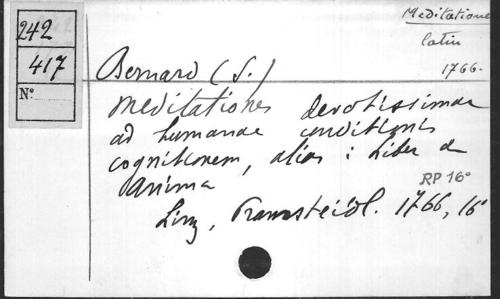 242
417
N°
Meditationes
latin
1766.
Bernard (S.)
Meditationes devotissimae
ad humanae conditionis
cognitionem, alias : Liber de
anima
RP 16°
Linz, 1766, 16°